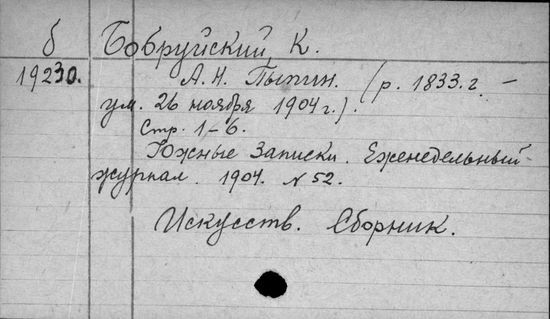 б Бобруйский К.
19230. А. Н. Пыпин. (р. 1833. г. –
ум. 26 ноября 1904 г.).
Стр. 1–6.
Южные Записки. Еженедельный
журнал. 1904. N 52.
Искусств. Сборник.